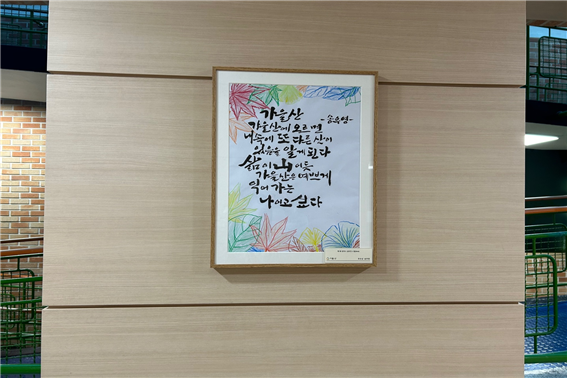 가을산
-손옥영-
가을산에 오르면
내속에 또 다른 산이
있음을 알게 된다
삶이 山이듯
가을산은 예쁘게
익어 가는
나이고 싶다